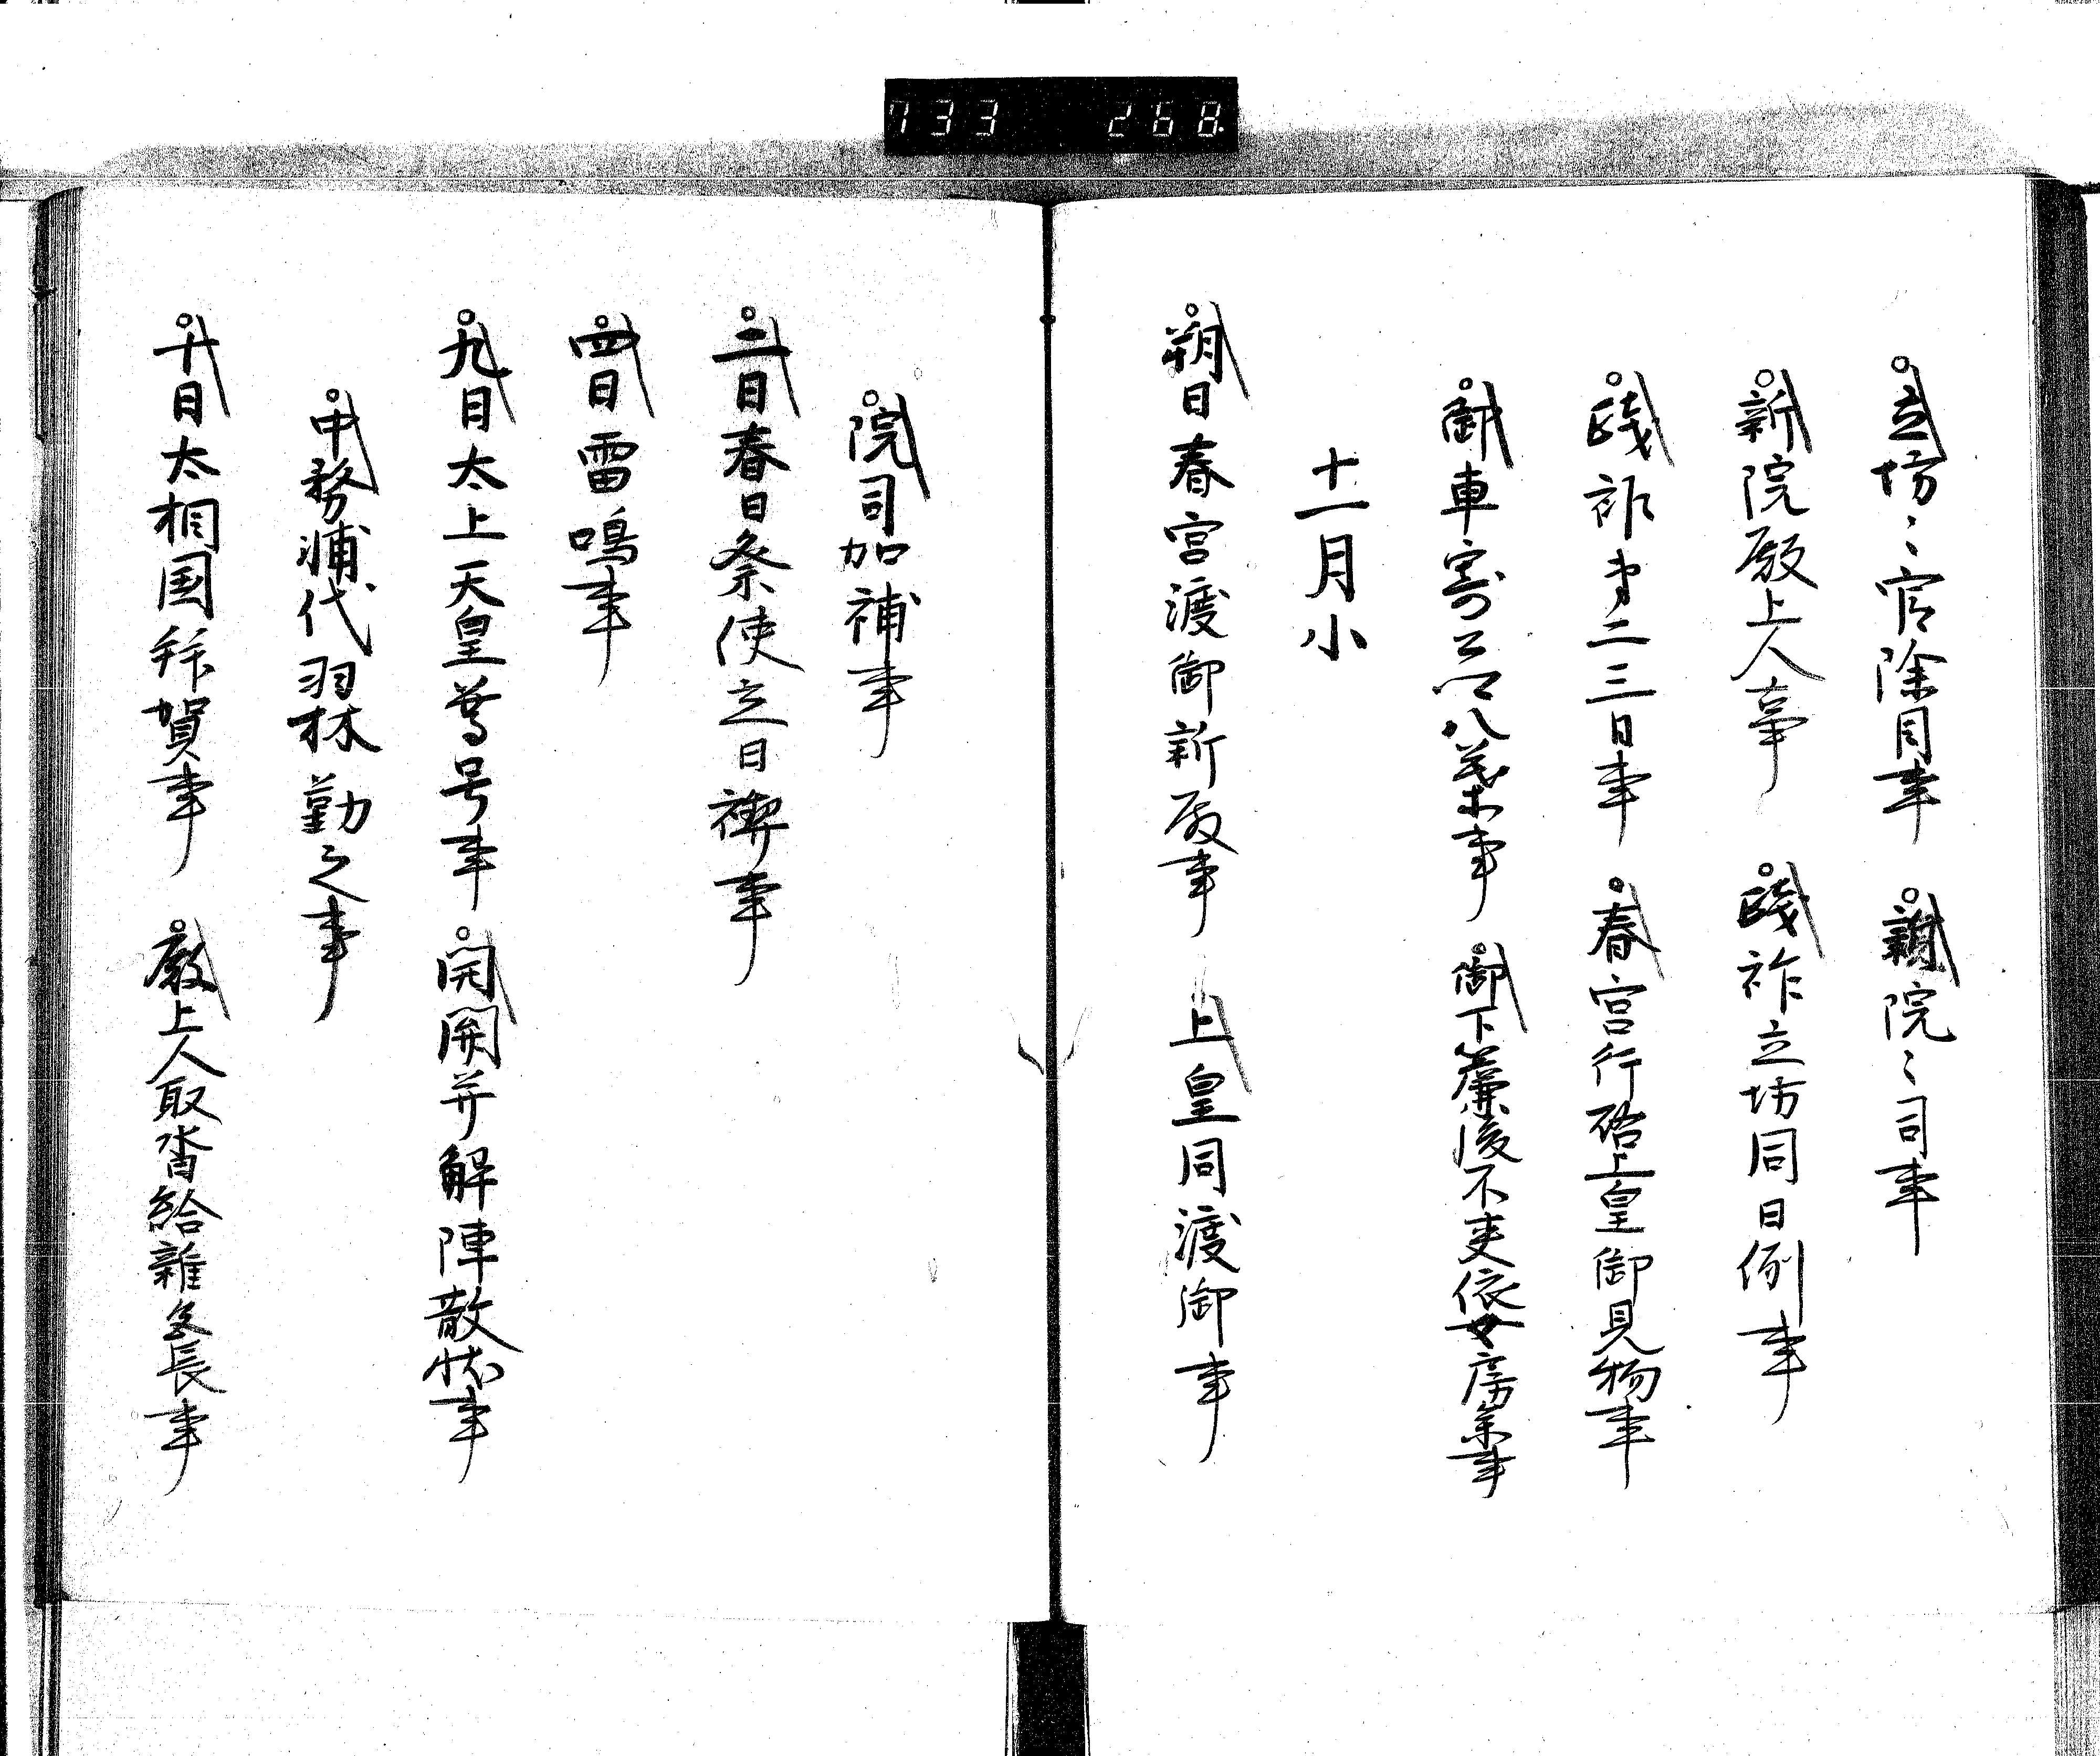 733 268
立坊〻官除目事 新院〻司事
新院殿上人事 践祚立坊同日例事
践祚第二三日事 春宮行啓上皇御見物事
御車寄公卿八葉事 御下簾後不更依女房参事
十一月小
朔日春宮渡御新殿事 上皇同渡御事
院司加補事
二日春日祭使立日禊事
四日雷鳴事
九日太上天皇尊号事 開関并解陣散状事
中務輔代羽林勤之事
十日太相国拝賀事 殿上人取沓給雑色長事